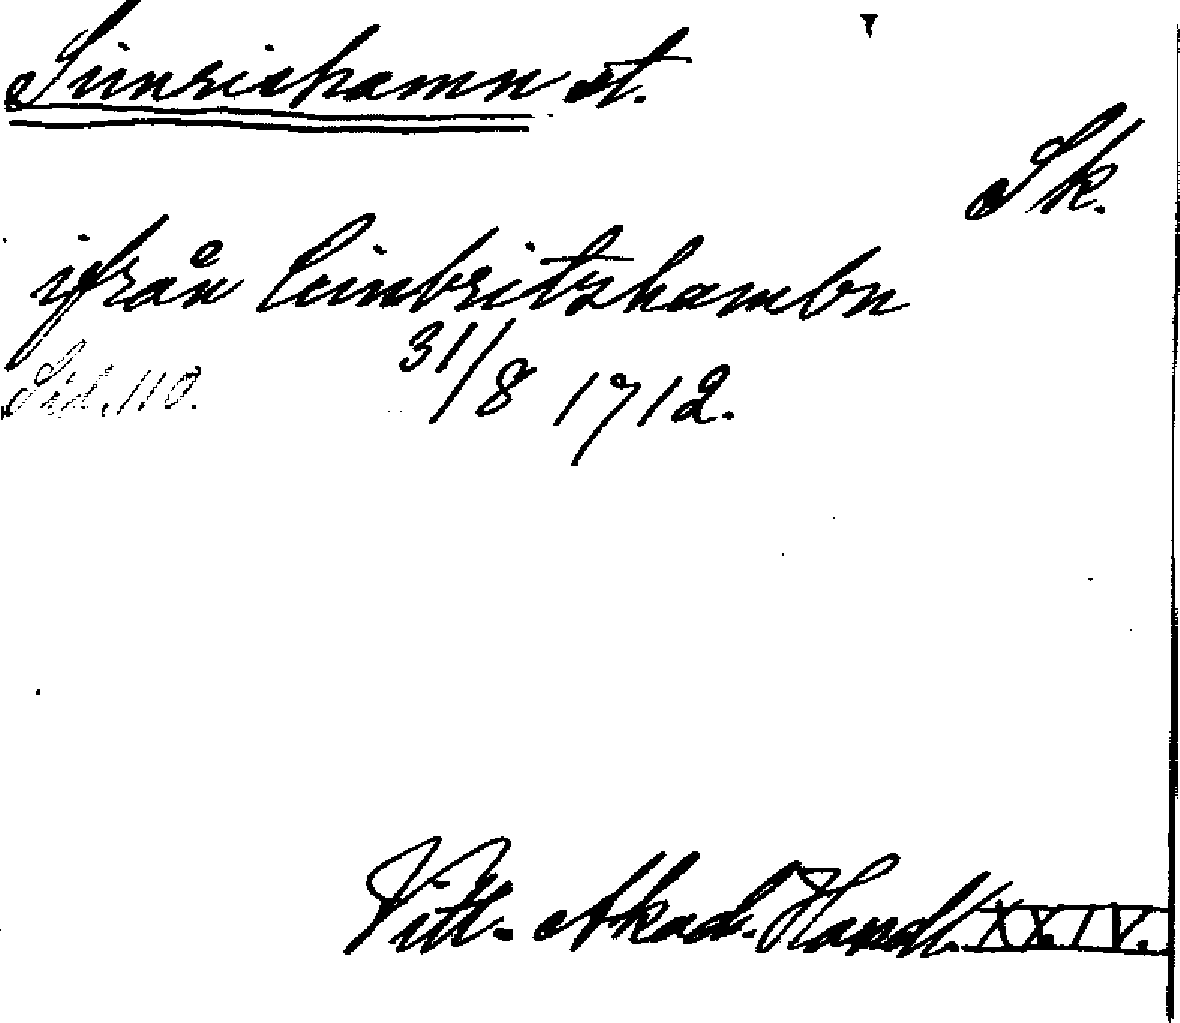 Simrishamn st.
Sk.
ifrån Cimbritzhambn
Sid. 110. 31/8 1712.
Vitt. Akad. Handl. XXIV.